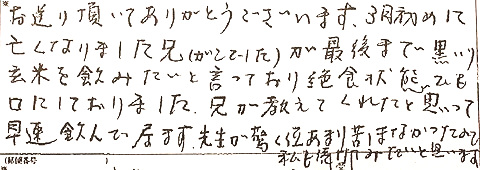 お送り頂いてありがとうございます。3月初めに
亡くなりました兄(がんでした)が最後まで黒いり
玄米を飲みたいと言っており絶食状態でも
口にしておりました。兄が教えてくれたと思って
早速飲んで居ます。先生が驚く位あまり苦しまなかったので
私も 飲みたいと思います
(郵便番号